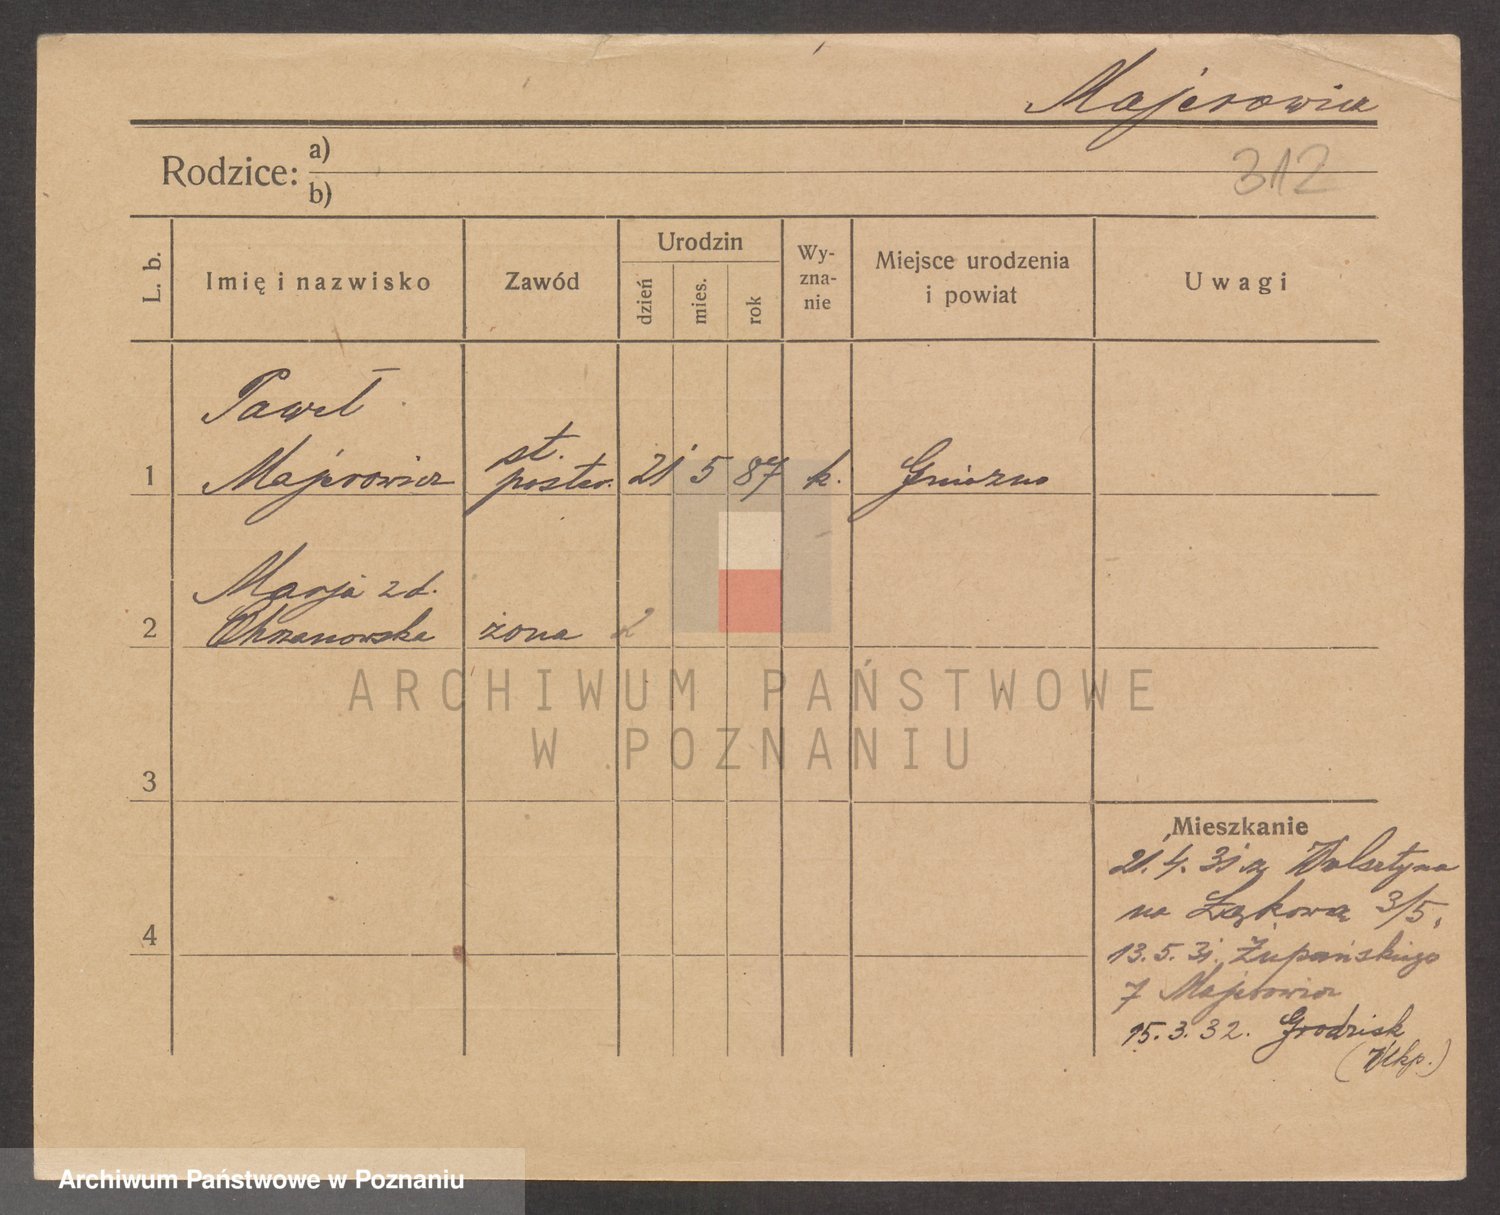 Majerowicz
Rodzice: a)
b)
312
L. b.
Imię i nazwisko
Zawód
Urodzin
dzień
mies.
rok
Wy-
zna-
nie
Miejsce urodzenia
i powiat
Uwagi
Paweł
1 Majerowicz st. poster. 21 5 87 k. Gniezno
Marja zd.
2 Chrzanowska żona
ARCHIWUM PAŃSTWOWE
W POZNANIU
3
Mieszkanie
21.4.31 z Wolsztyna
na Łąkową 3/5,
4
13.5.31. Żupańskiego
7 Majerowicz
15.3.32. Grodzisk
(Wlkp.)
Archiwum Państwowe w Poznaniu